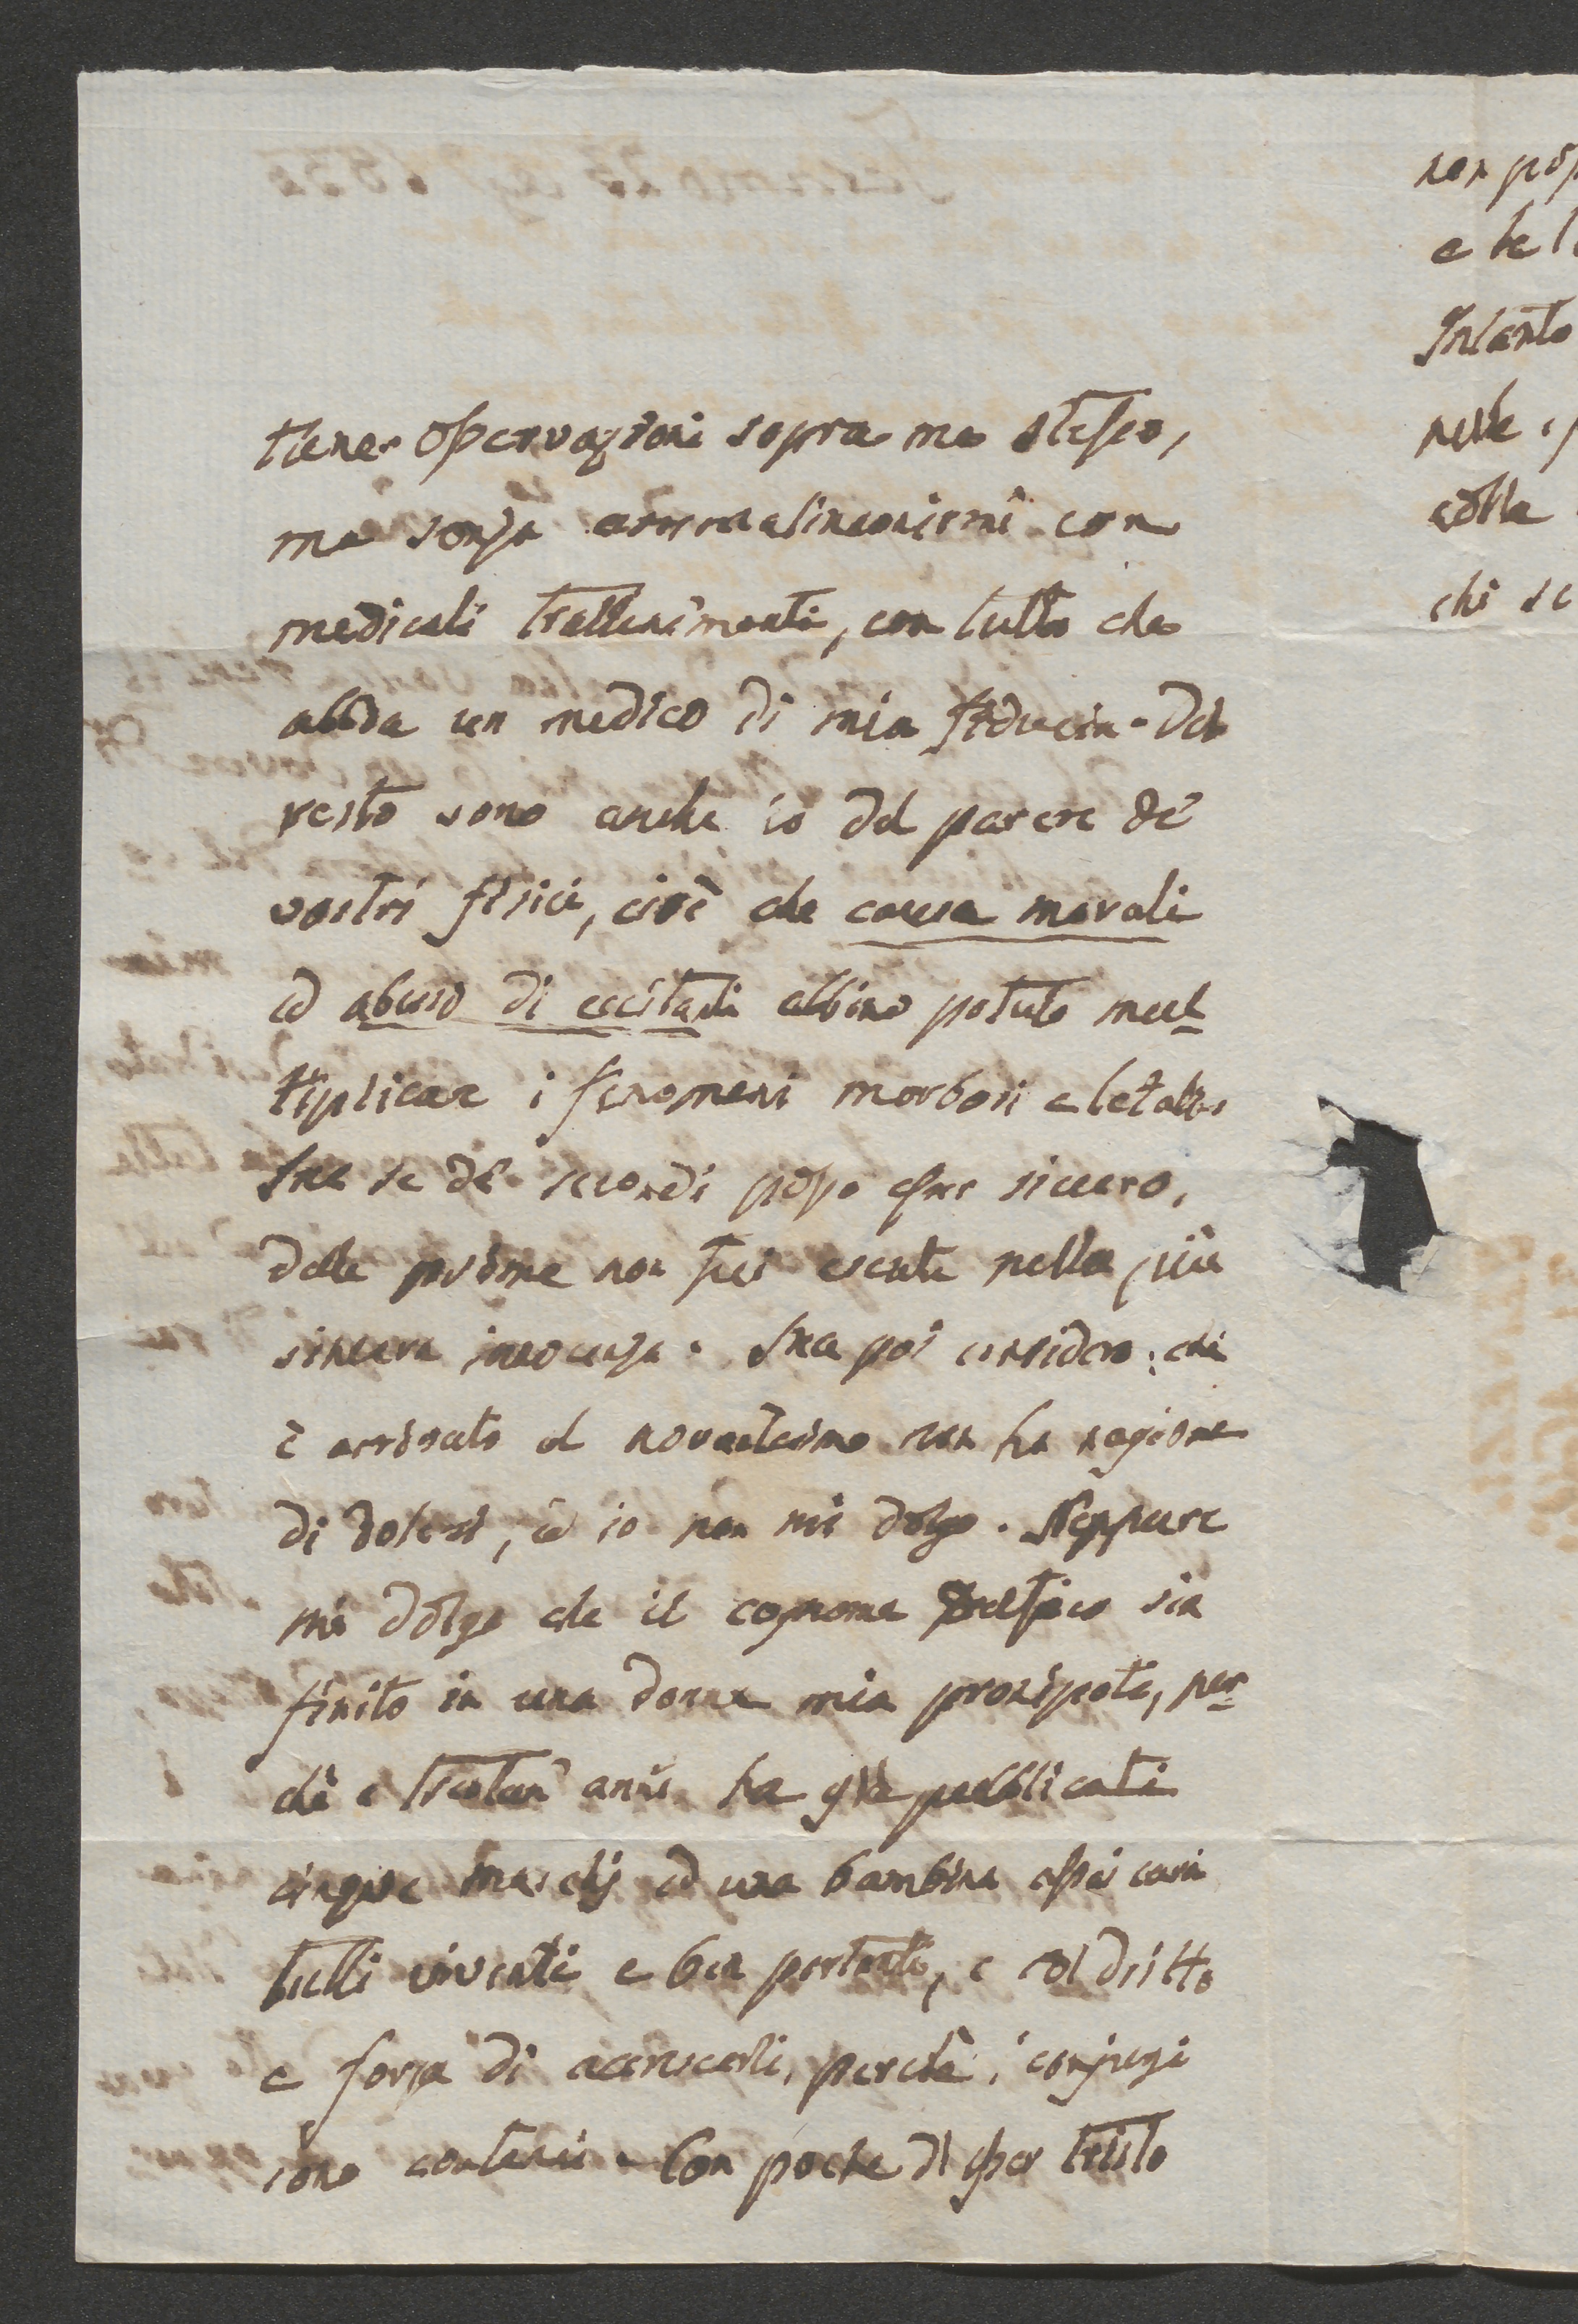 tiene osservazioni sopra me stesso,
ma senza ammalinconirmi con
medicali trattenimenti, con tutto che
abbia un medico di mia fiducia. Del
resto sono anche io del parere de'
vostri fisici, cioè che cause morali
ed abuso di eccitanti abbino potuto mul-
tiplicar i fenomeni morbosi e letali.
Ma se de' secondi posso esser sicuro,
delle prime non fui esente nella più
sincera innocenza. Ma poi considero: chi
è arrivato al novantesimo non ha ragione
di dolersi, ed io non mi dolgo. Neppure
mi dolgo che il cognome Delfico sia
finito in una donna mia pronipote, per-
chè a trentun' anni ha già pubblicati
cinque maschj ed una bambina assai cari
tutti viventi e ben portanti, e col dritto
e forza di accrescerli, perchè i conjugi
sono conterini. Con poche di esser tristo
non poss
e be l
Intanto
nelle
colla
chi se